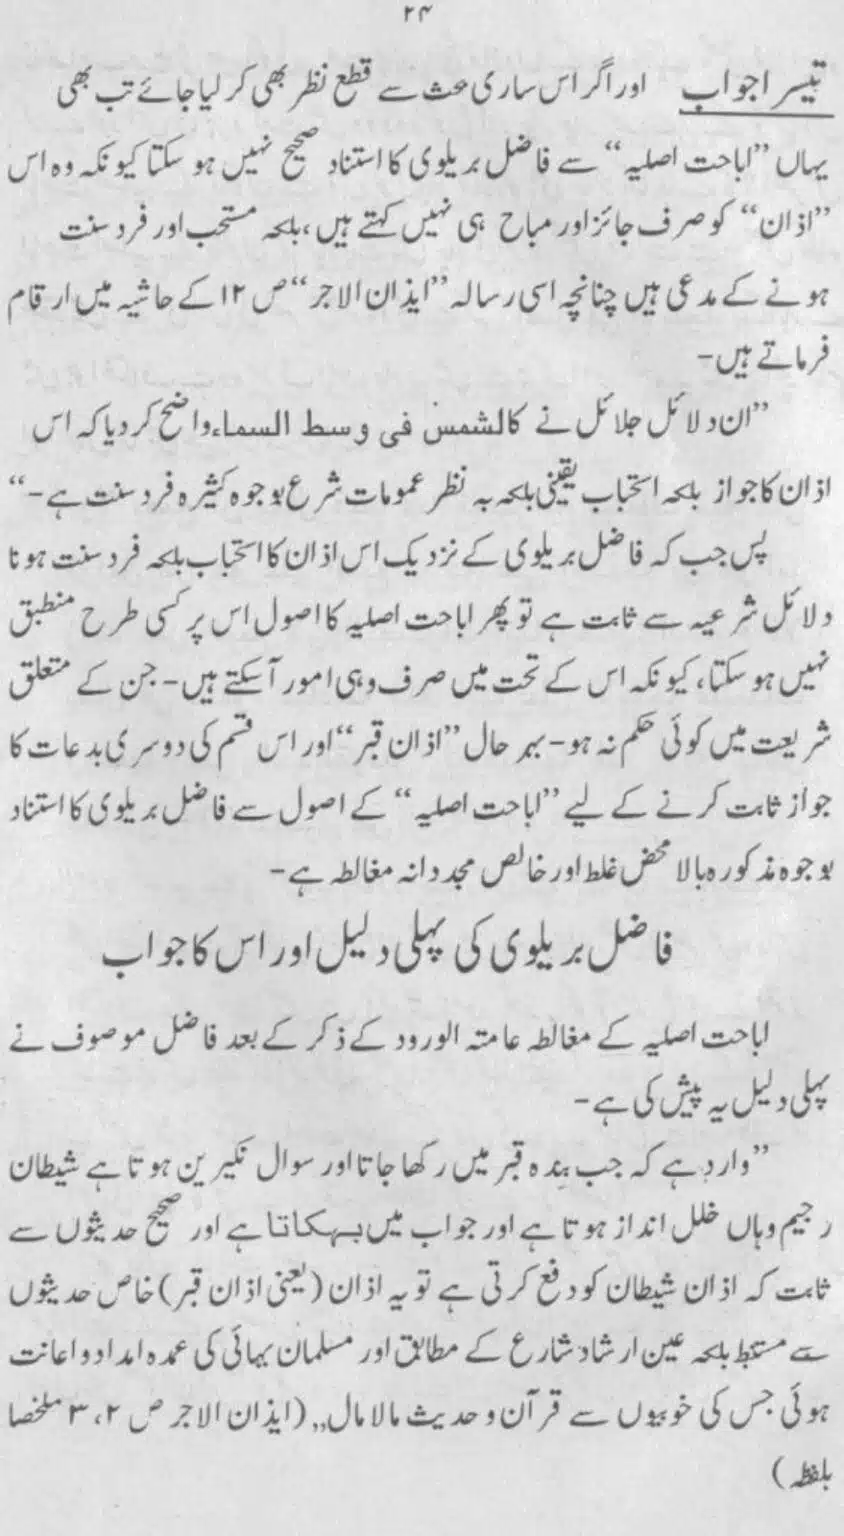 ۲۴
تیسرا جواب اور اگر اس ساری بحث سے قطع نظر بھی کر لیا جائے تب بھی
یہاں ”اباحت اصلیہ“ سے فاضل بریلوی کا استناد صحیح نہیں ہو سکتا کیونکہ وہ اس
”اذان“ کو صرف جائز اور مباح ہی نہیں کہتے ہیں، بلکہ مستحب اور فرد سنت
ہونے کے مدعی ہیں چنانچہ اسی رسالہ ”ایذان الاجر“ ص ۱۲ کے حاشیہ میں ارقام
فرماتے ہیں-
”ان دلائل جلائل نے کالشمس فی وسط السماء واضح کر دیا کہ اس
اذان کا جواز بلکہ استحباب یقینی بلکہ بہ نظر عمومات شرع بوجوہ کثیرہ فرد سنت ہے-“
پس جب کہ فاضل بریلوی کے نزدیک اس اذان کا استحباب بلکہ فرد سنت ہونا
دلائل شرعیہ سے ثابت ہے تو پھر اباحت اصلیہ کا اصول اس پر کسی طرح منطبق
نہیں ہو سکتا، کیونکہ اس کے تحت میں صرف وہی امور آ سکتے ہیں- جن کے متعلق
شریعت میں کوئی حکم نہ ہو- بہر حال ”اذان قبر“ اور اس قسم کی دوسری بدعات کا
جواز ثابت کرنے کے لیے ”اباحت اصلیہ“ کے اصول سے فاضل بریلوی کا استناد
بوجوہ مذکورہ بالا محض غلط اور خالص مجددانہ مغالطہ ہے-
فاضل بریلوی کی پہلی دلیل اور اس کا جواب
اباحت اصلیہ کے مغالطہ عامتہ الورود کے ذکر کے بعد فاضل موصوف نے
پہلی دلیل یہ پیش کی ہے-
”وارد ہے کہ جب بندہ قبر میں رکھا جاتا اور سوال نکیرین ہوتا ہے شیطان
رجیم وہاں خلل انداز ہوتا ہے اور جواب میں بہکاتا ہے اور صحیح حدیثوں سے
ثابت کہ اذان شیطان کو دفع کرتی ہے تو یہ اذان (یعنی اذان قبر) خاص حدیثوں
سے مستنبط بلکہ عین ارشاد شارع کے مطابق اور مسلمان بھائی کی عمدہ امداد و اعانت
ہوئی جس کی خوبیوں سے قرآن و حدیث مالا مال,, (ایذان الاجر ص ۲، ۳ ملخصا
بلفظہ)